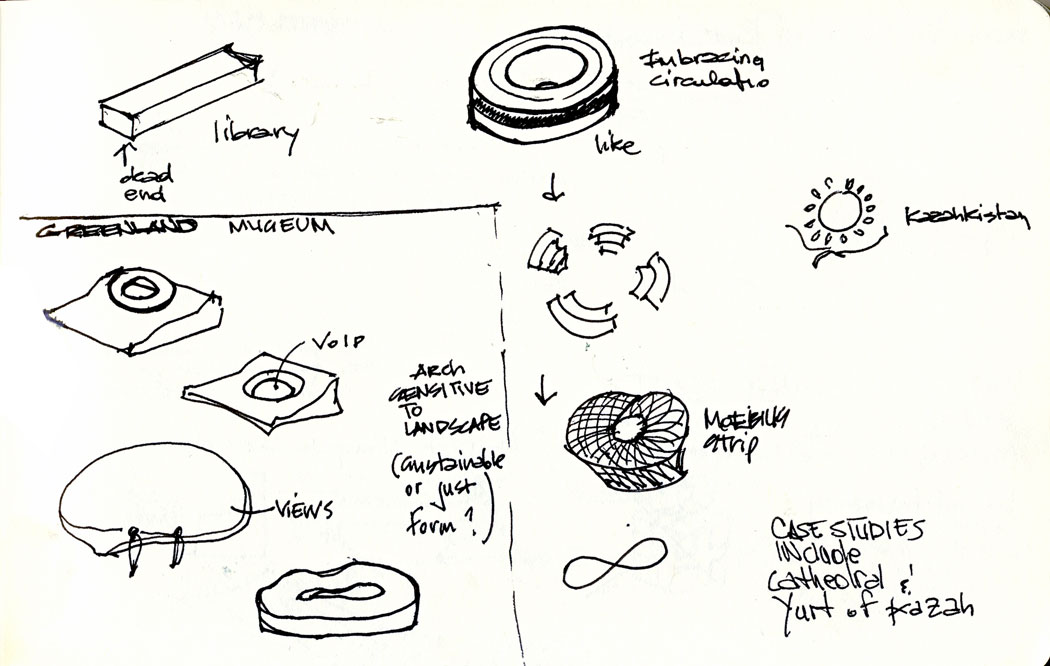 library
dead
end
Embracing
circulatio
like
Kazahkistan
GREENLAND MUSEUM
VOID
ARCH
SENSITIVE
TO
LANDSCAPE
(sustainable
or just
form?)
VIEWS
MOEBIUS
strip
CASE STUDIES
include
cathedral &
Yurt of Kazah